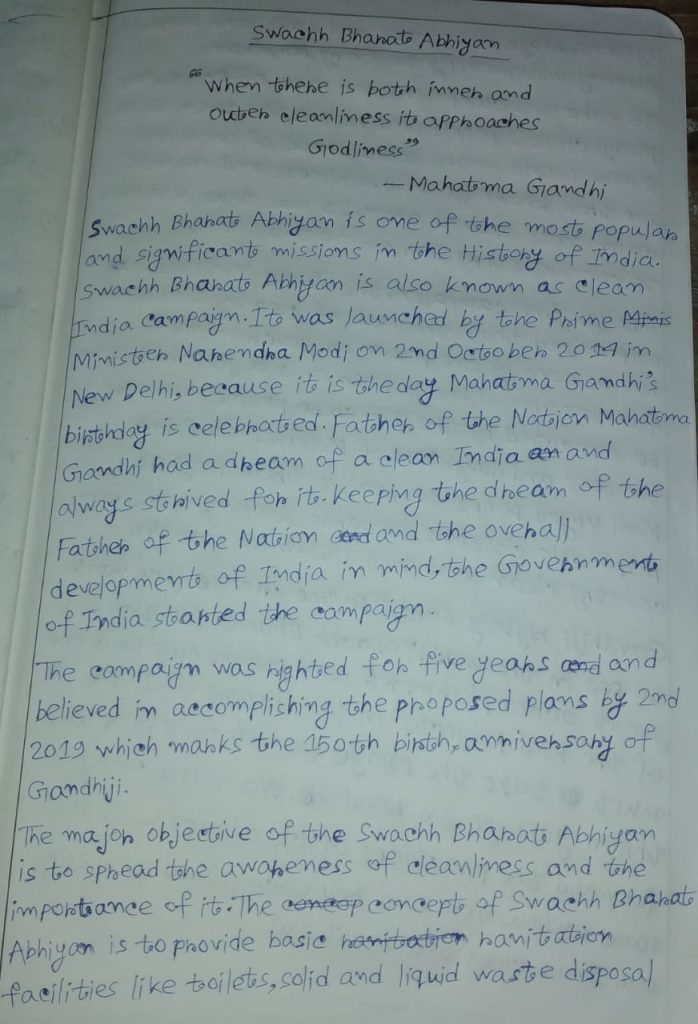 Swachh Bharat Abhiyan
"When there is both inner and
outer cleanliness it approaches
Godliness"
— Mahatma Gandhi
Swachh Bharat Abhiyan is one of the most popular
and significant missions in the History of India.
Swachh Bharat Abhiyan is also known as clean
India campaign. It was launched by the Prime Minis
Minister Narendra Modi on 2nd October 2014 in
New Delhi, because it is the day Mahatma Gandhi's
birthday is celebrated. Father of the Nation Mahatma
Gandhi had a dream of a clean India an and
always strived for it. Keeping the dream of the
Father of the Nation and and the overall
development of India in mind, the Government
of India started the campaign.
The campaign was righted for five years and and
believed in accomplishing the proposed plans by 2nd
2019 which marks the 150th birth, anniversary of
Gandhiji.
The major objective of the Swachh Bharat Abhiyan
is to spread the awareness of cleanliness and the
importance of it. The concep concept of Swachh Bharat
Abhiyan is to provide basic ranitation ranitation
facilities like toilets, solid and liquid waste disposal